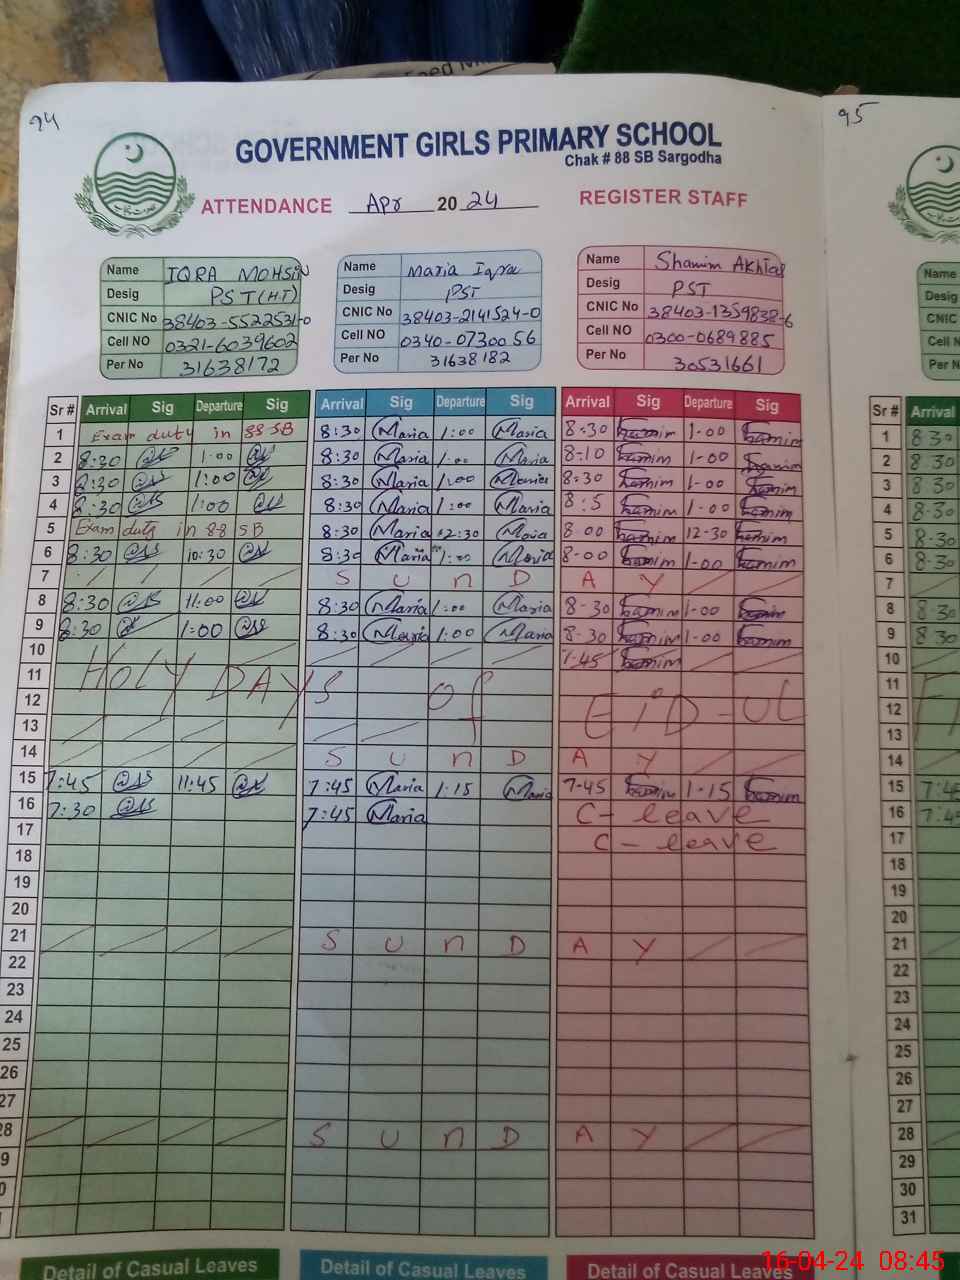 94
95
GOVERNMENT GIRLS PRIMARY SCHOOL
Chak # 88 SB Sargodha
ATTENDANCE Apr 2024 REGISTER STAFF
Name IQRA MOHSIN
Desig PST(H.T)
CNIC No 38403-5522531-0
Cell NO 0321-6039602
Per No 31638172
Name Maria Iqra
Desig PST
CNIC No 38403-2141524-0
Cell NO 0340-0730056
Per No 31638182
Name Shamim Akhtar
Desig PST
CNIC No 38403-1359838-6
Cell NO 0300-0689885
Per No 30531661
Name
Desig
CNIC
Cell N
Per N
Sr # Arrival Sig Departure Sig Arrival Sig Departure Sig Arrival Sig Departure Sig Sr # Arrival
1 Exam duty in 88 SB 8:30 Maria 1:00 Maria 8:30 Shamim 1-00 Shamim 1 8 30
2 8:30 1:00 8:30 Maria 1:00 Maria 8:10 Shamim 1-00 Shamim 2 8 30
3 8:30 1:00 8:30 Maria 1:00 Maria 8-30 Shamim 1-00 Shamim 3 8 30
4 8:30 1:00 8:30 Maria 1:00 Maria 8:5 Shamim 1-00 Shamim 4 8-30
5 Exam duty in 88 SB 8:30 Maria 12:30 Maria 8 00 Shamim 12-30 Shamim 5 8-30
6 8:30 10:30 8:30 Maria 1:00 Maria 8-00 Shamim 1-00 Shamim 6 8-30
7 S U n D A Y 7
8 8:30 11:00 8:30 Maria 1:00 Maria 8-30 Shamim 1-00 Shamim 8 8-30
9 8:30 1:00 8:30 Maria 1:00 Maria 8-30 Shamim 1-00 Shamim 9 8 30
10 7-45 Shamim 10
11 HOLY DAYS of EiD-UL 11
12 12
13 13
14 S U n D A Y 14
15 7:45 11:45 7:45 Maria 1:15 Maria 7-45 Shamim 1-15 Shamim 15 7:4
16 7:30 7:45 Maria C- leave 16 7:4
17 C- leave 17
18 18
19 19
20 20
21 S U n D A Y 21
22 22
23 23
24 24
25 25
26 26
27 27
28 S U n D A Y 28
9 29
0 30
1 31
Detail of Casual Leaves Detail of Casual Leaves Detail of Casual Leaves
16-04-24 08:45